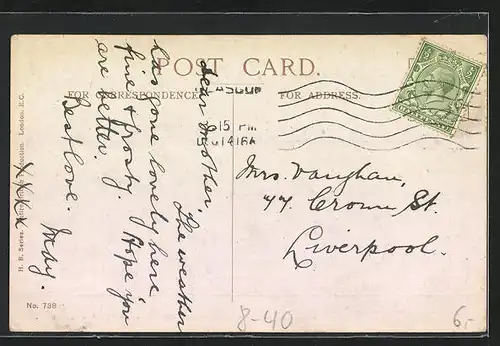 POST CARD.
FOR CORRESPONDENCE
FOR ADDRESS.
Dear Mother,
The weather
has gone lovely here
fine & frosty. Hope you
are better.
Best love.
XXXX
Mrs. Vaughan,
77 Crown St.
Liverpool.
H. B. Series.
London, E.C.
No. 738
8-40
6.-